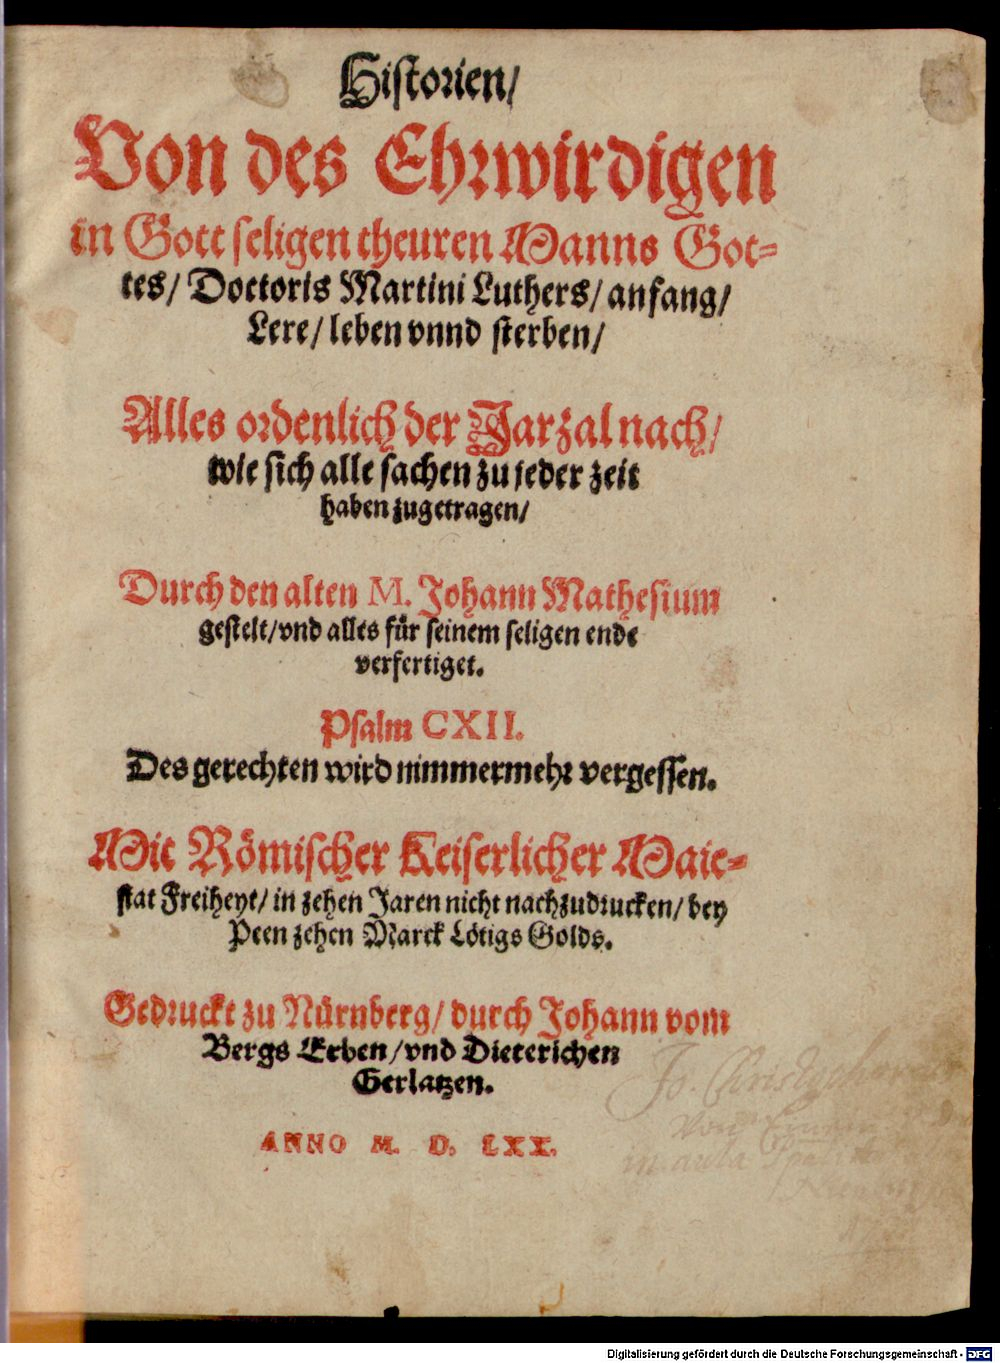 Historien/
Von des Ehrwirdigen
in Gott seligen theuren Manns Got=
tes/ Doctoris Martini Luthers/ anfang/
Lere/ leben vnnd sterben/
Alles ordenlich der Jarzal nach/
wie sich alle sachen zu jeder zeit
haben zugetragen/
Durch den alten M. Johann Mathesium
gestelt/ vnd alles für seinem seligen ende
verfertiget.
Psalm CXII.
Des gerechten wird nimmermehr vergessen.
Mit Römischer Keiserlicher Maie=
stat Freiheyt/ in zehen Jaren nicht nachzudrucken/ bey
Peen zehen Marck Lötigs Golds.
Gedruckt zu Nürnberg/ durch Johann vom
Bergs Erben/ vnd Dieterichen
Gerlatzen.
ANNO M. D. LXX.
Jo.
in aula
Digitalisierung gefördert durch die Deutsche Forschungsgemeinschaft - DFG